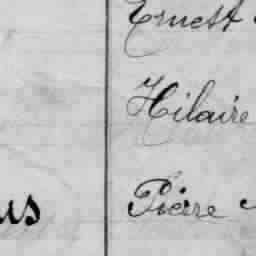 Ernest
Hilaire
us Pierre